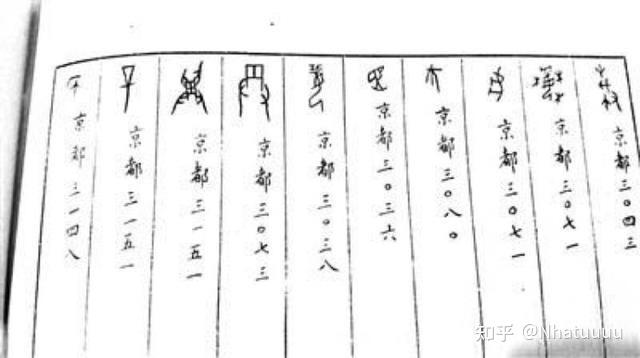 京都三〇四三
京都三〇七一
京都三〇七一
京都三〇八〇
京都三〇三六
京都三〇三八
京都三〇七三
京都三一五一
京都三一五一
京都三一四八
知乎 @Nhatuuuu